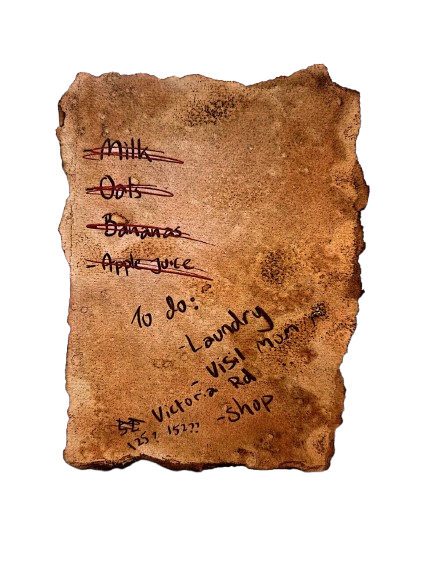 - Milk
- Oats
- Bananas
- Apple Juice
To do:
- Laundry
- Visit Mum
Victoria Rd
125? 152??
- Shop